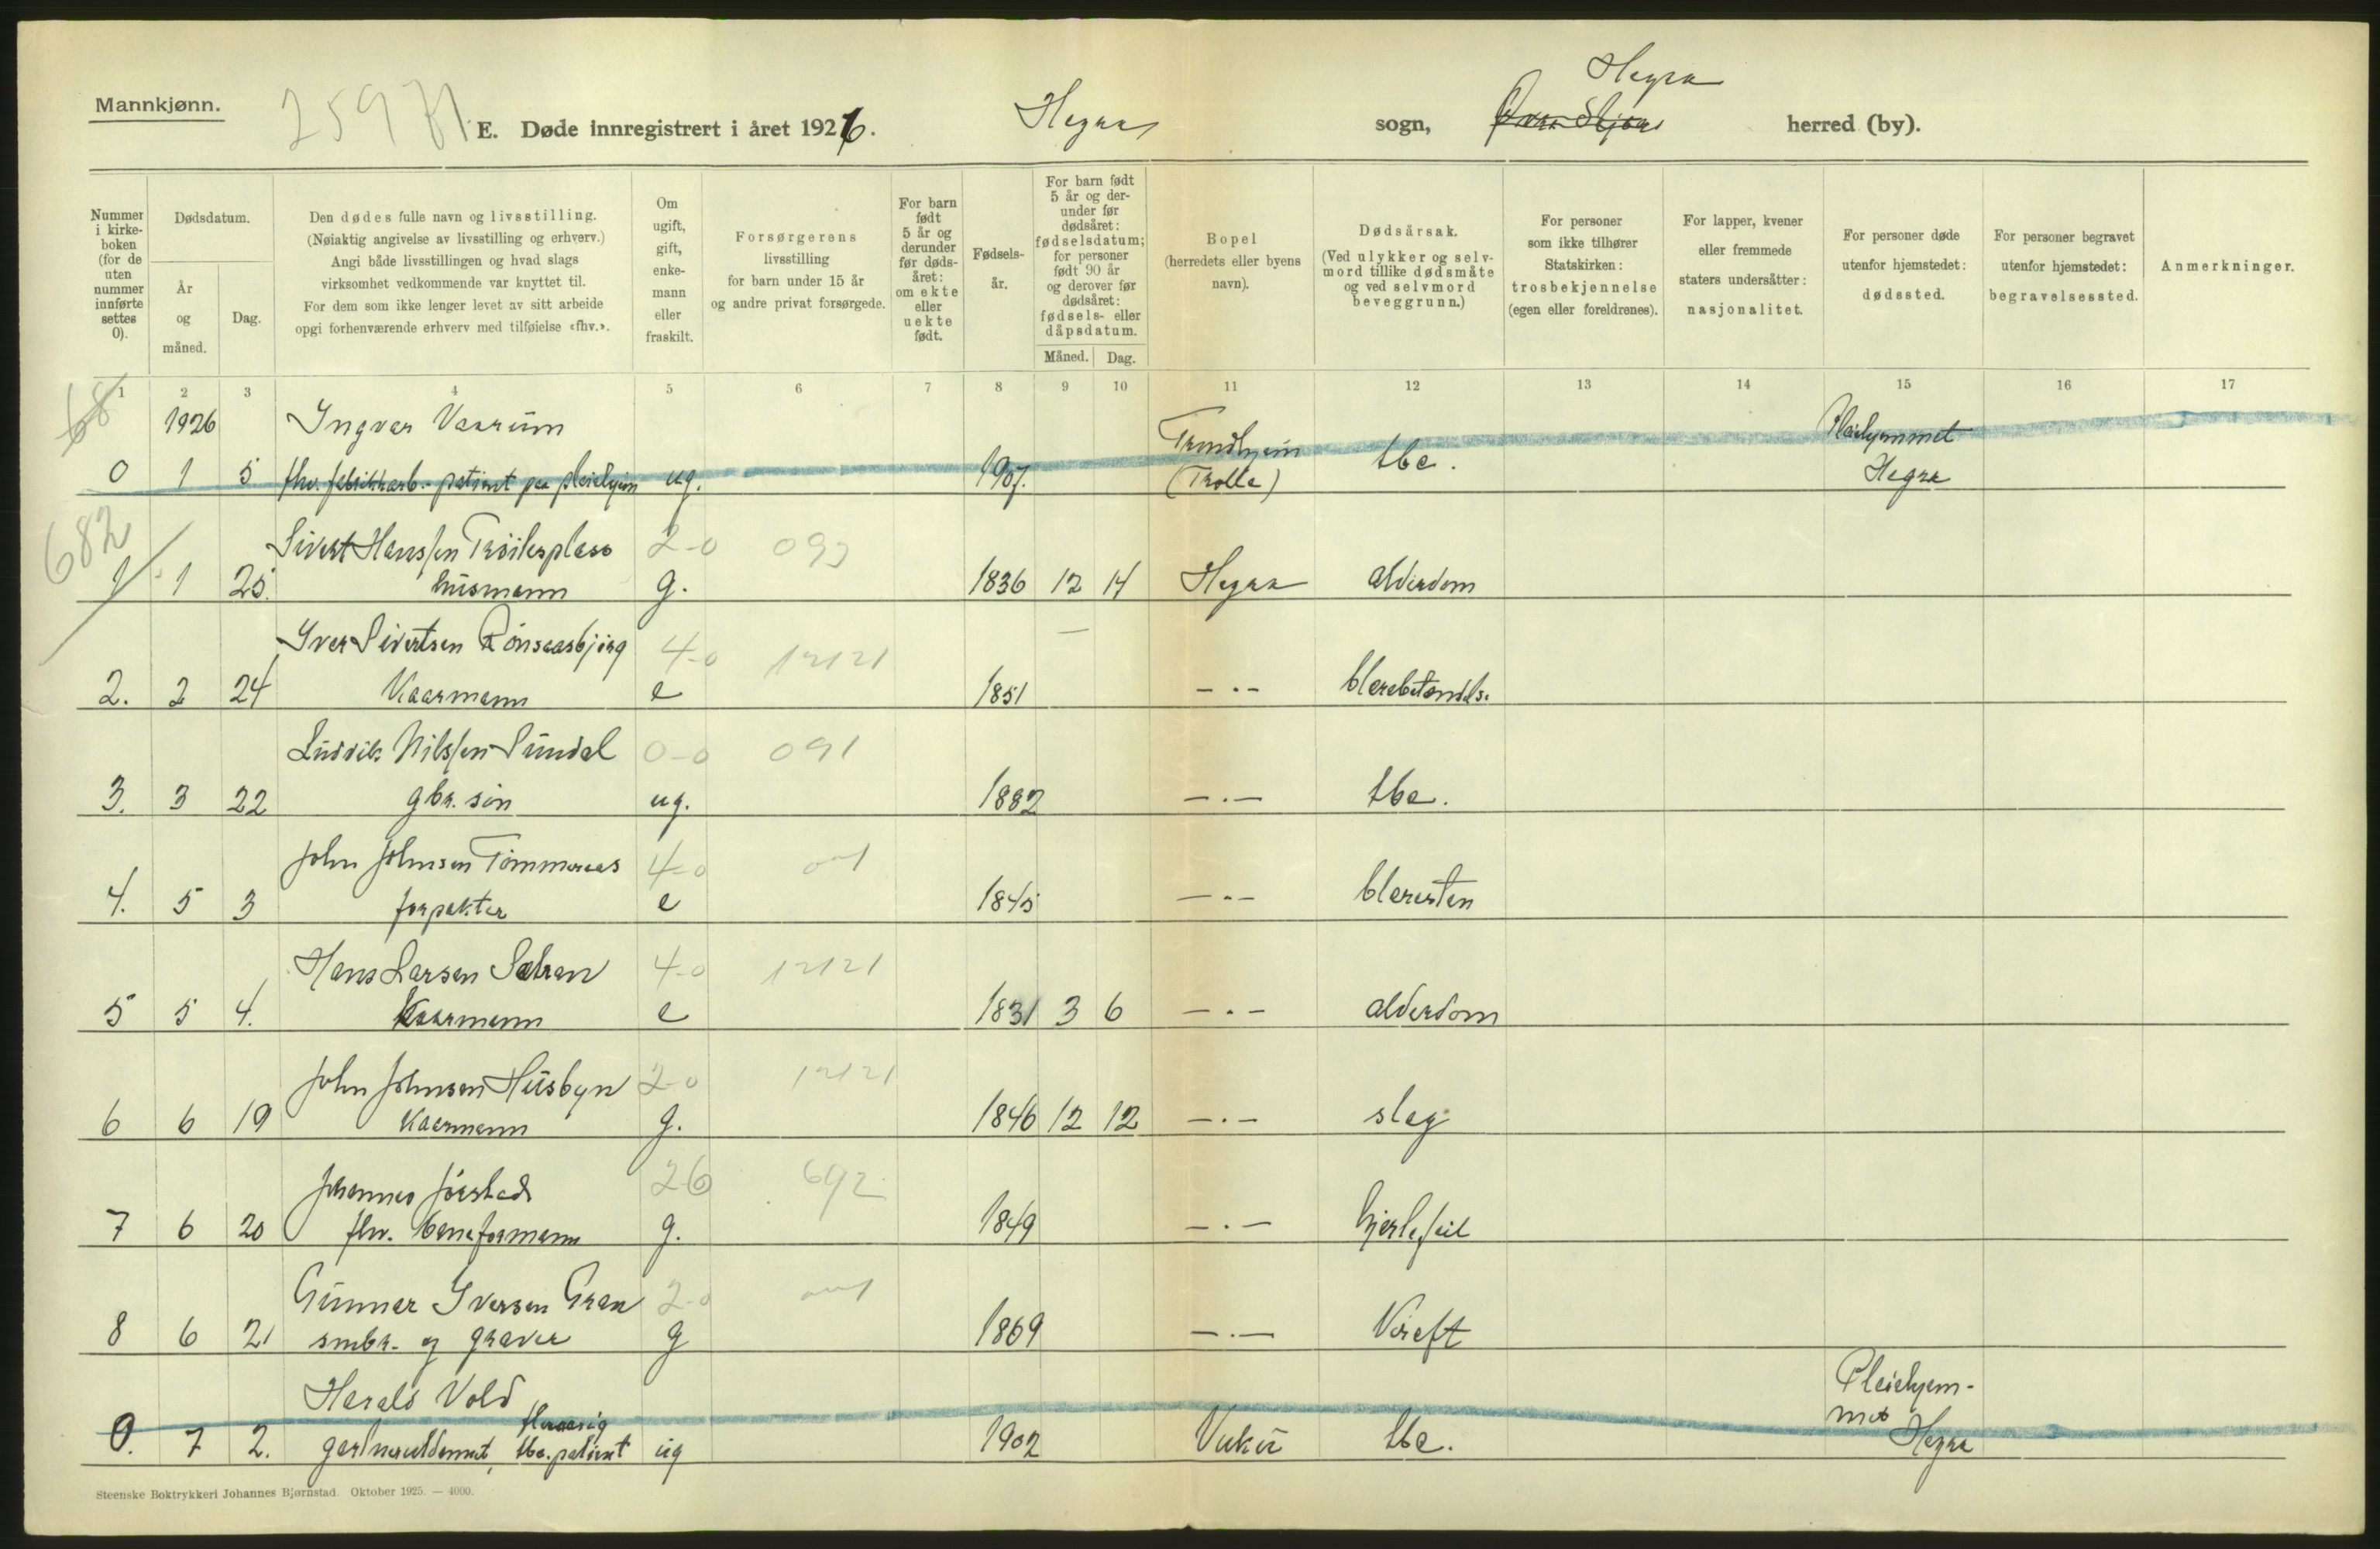 Mannkjønn.
E. Døde innregistrert i året 1926.
Hegra
sogn,
Hegra
herred (by).
Nummer i kirke- boken (for de uten nummer innførte settes 0).
Dødsdatum.
År og måned.
Dag.
Den dødes fulle navn og livsstilling.
(Nøiaktig angivelse av livsstilling og erhverv.)
Angi både livsstillingen og hvad slags
virksomhet vedkommende var knyttet til.
For dem som ikke lenger levet av sitt arbeide
opgi forhenværende erhverv med tilføielse «fhv.».
Om ugift, gift, enke- mann eller fraskilt.
Forsørgerens
livsstilling
for barn under 15 år
og andre privat forsørgede.
For barn født 5 år og derunder før døds- året: om ekte eller uekte født.
Fødsels- år.
For barn født 5 år og der- under før dødsåret: fødselsdatum; for personer født 90 år og derover før dødsåret: fødsels- eller dåpsdatum.
Måned. Dag.
Bopel
(herredets eller byens
navn).
Dødsårsak.
(Ved ulykker og selv-
mord tillike dødsmåte
og ved selvmord
beveggrunn.)
For personer
som ikke tilhører
Statskirken:
trosbekjennelse
(egen eller foreldrenes).
For lapper, kvener
eller fremmede
staters undersåtter:
nasjonalitet.
For personer døde
utenfor hjemstedet:
dødssted.
For personer begravet
utenfor hjemstedet:
begravelsessted.
Anmerkninger.
1 2 3 4 5 6 7 8 9 10 11 12 13 14 15 16 17
68
1926 Ingvar Vaarum Trondhjem Pleiehjemmet
0 1 5 fhv. fabrikkarb.- patient paa pleiehjem ug. 1907. (Trolla) tbc. Hegra
682
Sivert Hanssen Trøiterplass 2-0 093
1 1 25. husmann g. 1836 12 14 Hegra alderdom
Iver Sivertsen Rönsaasbjörg 4-0 12121 —
2. 2 24 Kaarmann e 1851 -"- blærebetændelse
Ludvik Nilssen Sundal 0-0 091
3. 3 22 gbr. søn ug. 1882 -"- tbc.
John Johnsen Tømmeraas 4-0
4. 5 3 forpakter e 1845 -"- blæresten
Hans Larsen 4-0 12121
5 5 4. Kaarmann e 1831 3 6 -"- alderdom
John Johnsen Husbyn 2-0 12121
6 6 19 Kaarmann g. 1846 12 12 -"- slag
Johannes Jørstad 692
7 6 20 fhv. baneformann g. 1849 -"- hjertefeil
Gunnar Iversen Gran 2-0
8 6 21 smbr. og graver g 1869 -"- Kræft
Harald Vold Pleiehjem-
fleraarig met
0. 7 2. gartnerutdannet, tbc. patient ug 1902 Vuku tbc. Hegra
Steenske Boktrykkeri Johannes Bjørnstad. Oktober 1925. — 4000.